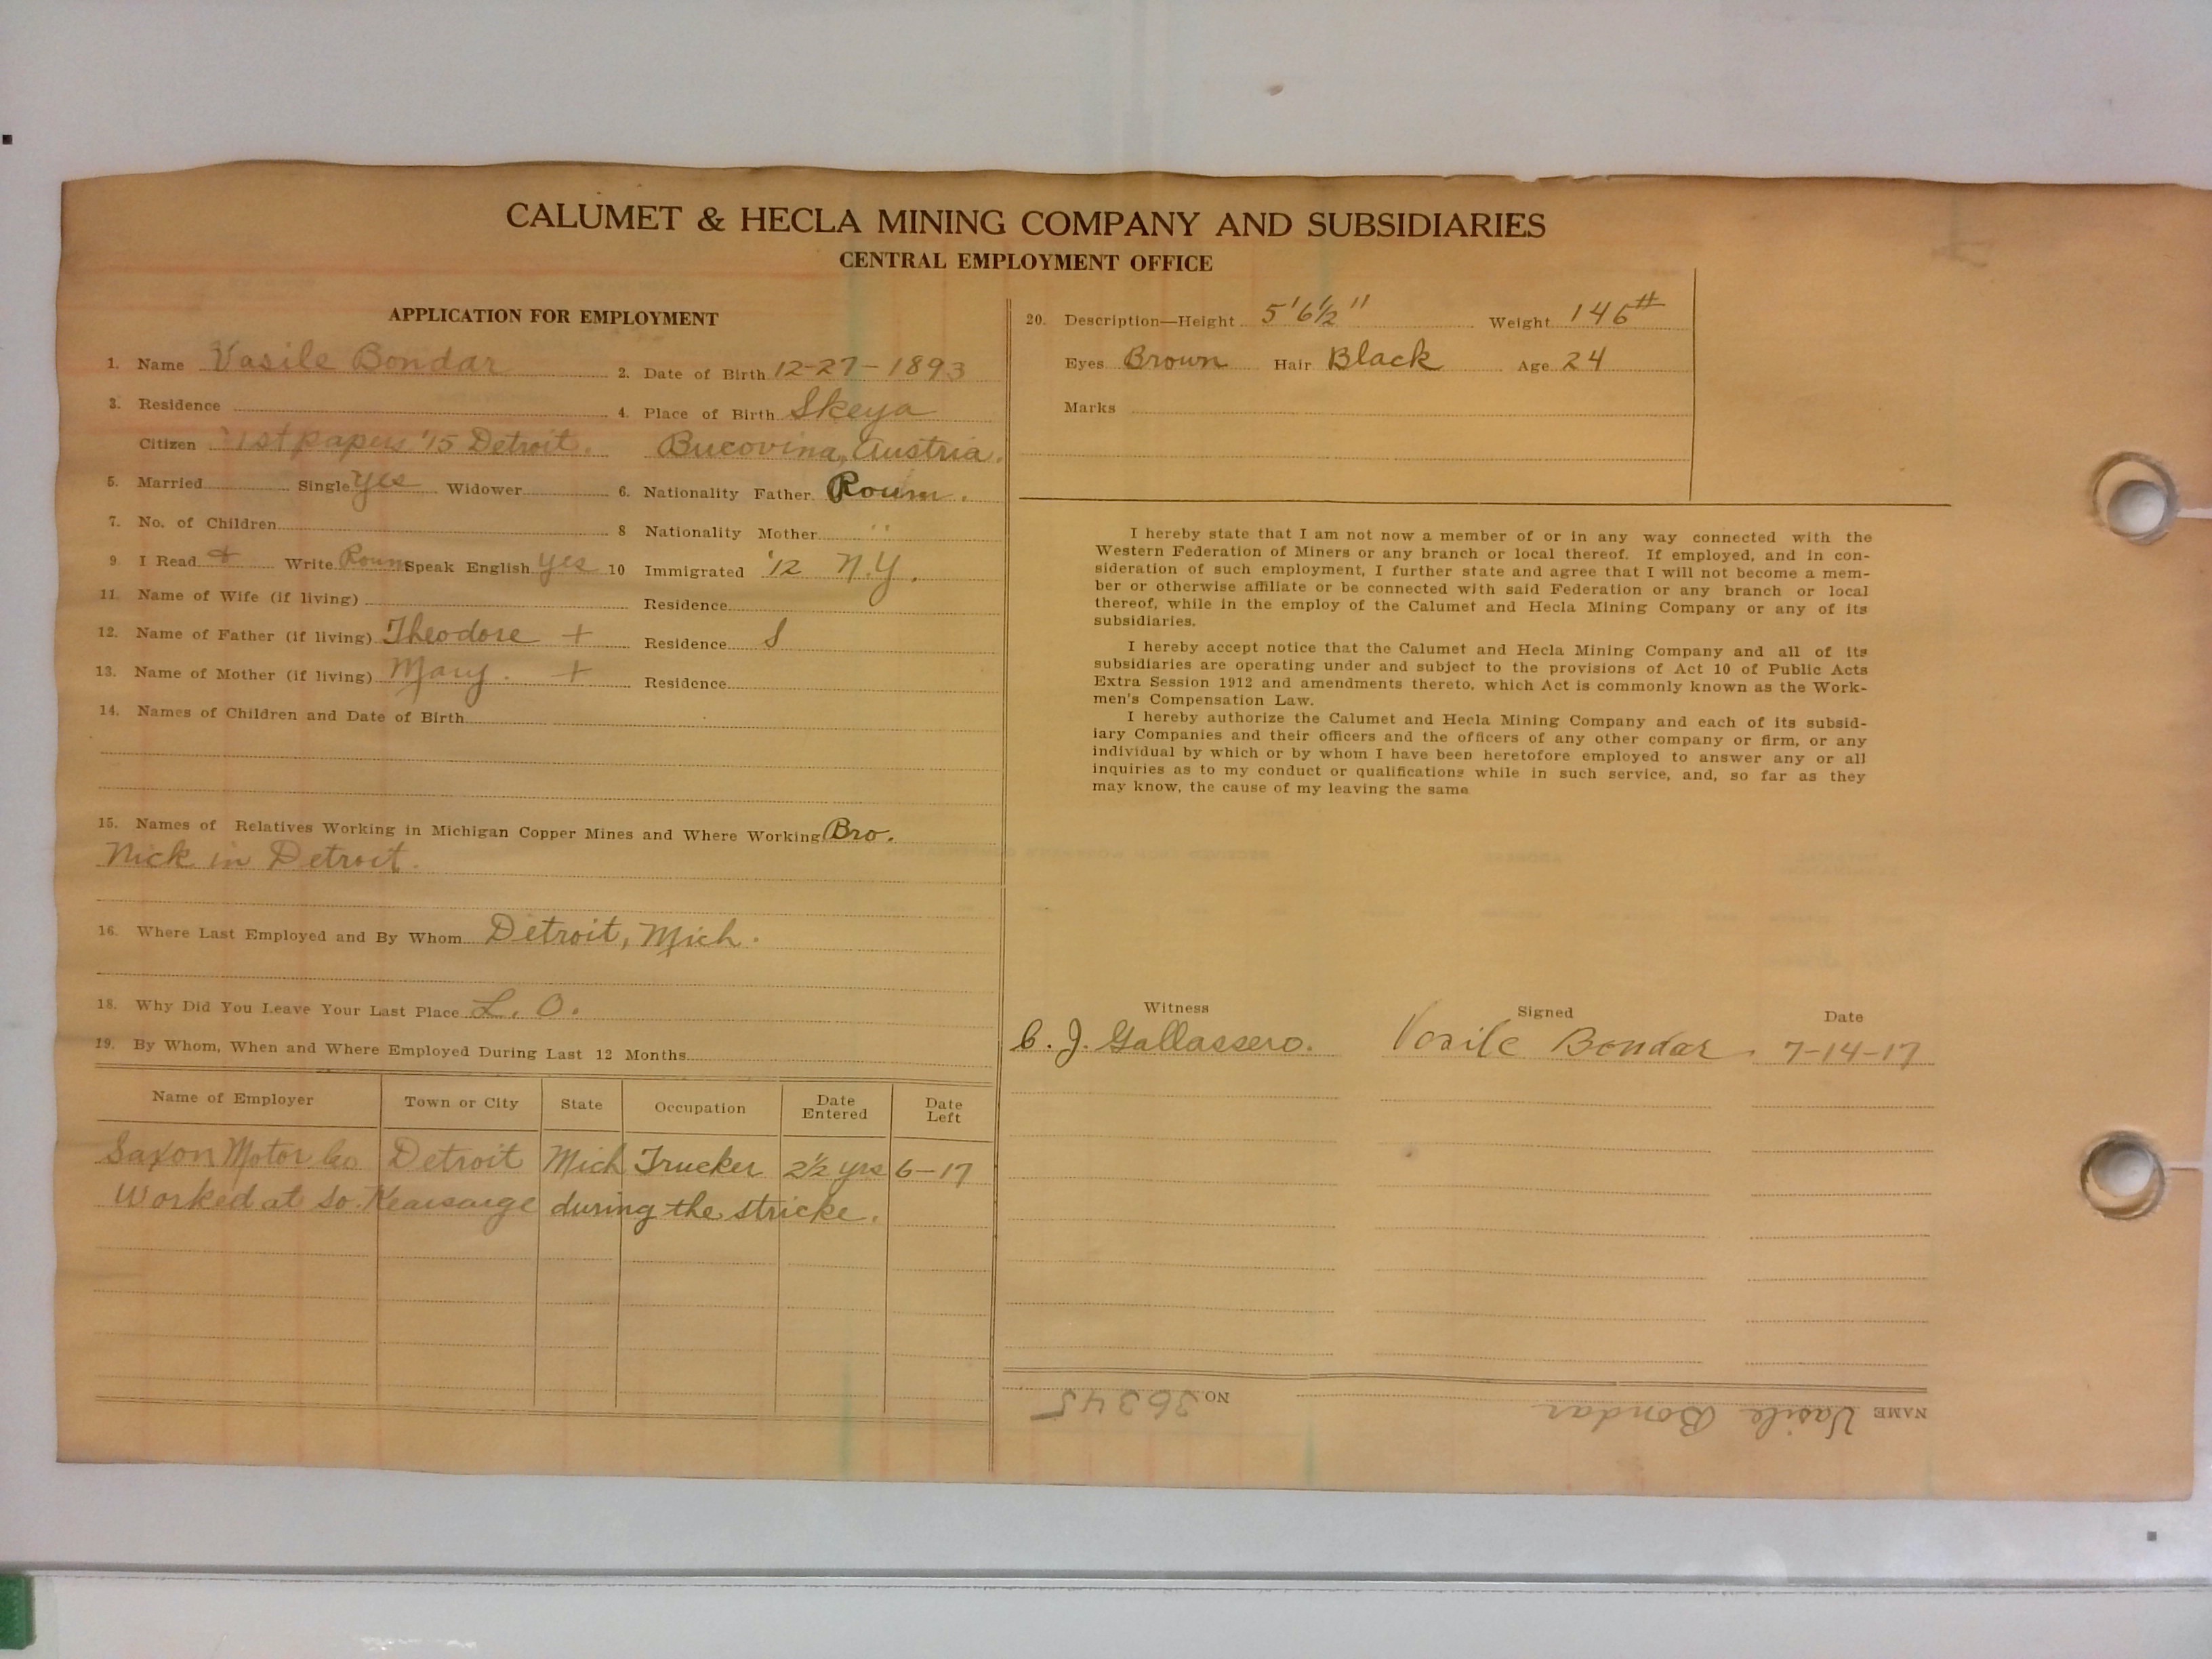 CALUMET & HECLA MINING COMPANY AND SUBSIDIARIES
CENTRAL EMPLOYMENT OFFICE
APPLICATION FOR EMPLOYMENT
1. Name Vasile Bondar 2. Date of Birth 12-27-1893
3. Residence 4. Place of Birth Skeya
Citizen 1st papers '15 Detroit. Bucovina, Austria.
5. Married Single yes Widower 6. Nationality Father Roum.
7. No. of Children 8 Nationality Mother "
9. I Read & Write Roum Speak English yes 10 Immigrated '12 N.Y.
11. Name of Wife (if living) Residence
12. Name of Father (if living) Theodore + Residence S
13. Name of Mother (if living) Mary. + Residence
14. Names of Children and Date of Birth
15. Names of Relatives Working in Michigan Copper Mines and Where Working Bro.
Nick in Detroit.
16. Where Last Employed and By Whom Detroit, Mich.
18. Why Did You Leave Your Last Place L. O.
19. By Whom, When and Where Employed During Last 12 Months
Name of Employer Town or City State Occupation Date Entered Date Left
Saxon Motor Co Detroit Mich Trucker 2½ yrs 6-17
Worked at So. Kearsarge during the stricke.
20. Description—Height 5'6½" Weight 146#
Eyes Brown Hair Black Age 24
Marks
I hereby state that I am not now a member of or in any way connected with the
Western Federation of Miners or any branch or local thereof. If employed, and in con-
sideration of such employment, I further state and agree that I will not become a mem-
ber or otherwise affiliate or be connected with said Federation or any branch or local
thereof, while in the employ of the Calumet and Hecla Mining Company or any of its
subsidiaries.
I hereby accept notice that the Calumet and Hecla Mining Company and all of its
subsidiaries are operating under and subject to the provisions of Act 10 of Public Acts
Extra Session 1912 and amendments thereto, which Act is commonly known as the Work-
men's Compensation Law.
I hereby authorize the Calumet and Hecla Mining Company and each of its subsid-
iary Companies and their officers and the officers of any other company or firm, or any
individual by which or by whom I have been heretofore employed to answer any or all
inquiries as to my conduct or qualifications while in such service, and, so far as they
may know, the cause of my leaving the same
Witness Signed Date
C. J. Gallassero. Vasile Bondar. 7-14-17
NAME Vasile Bondar NO. 36345